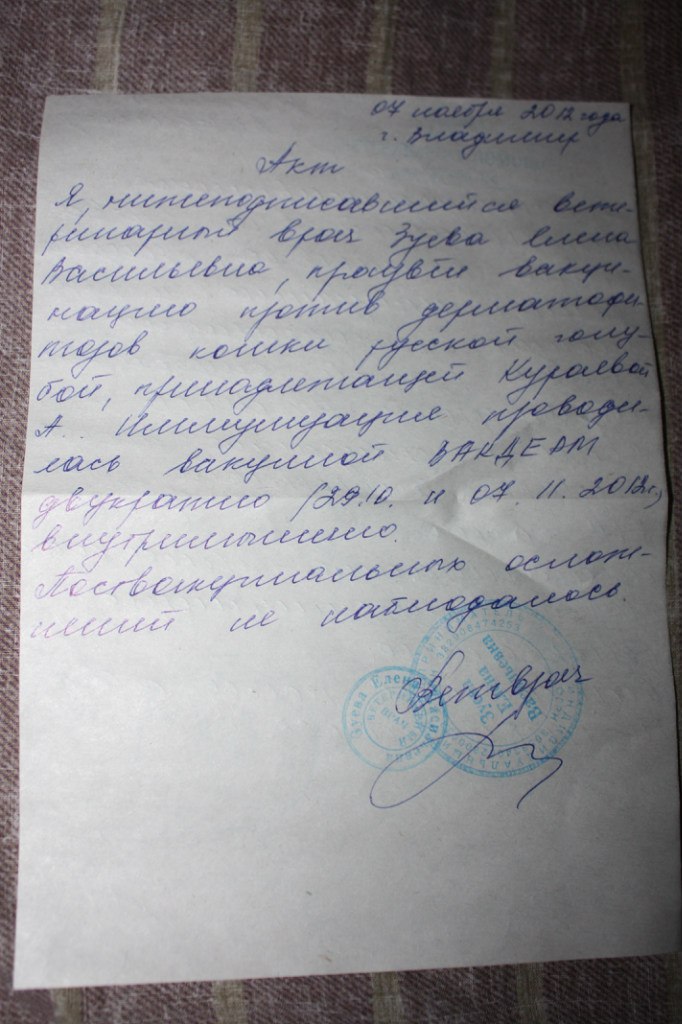 07 ноября 2012 года
г. Владимир
Акт
Я, нижеподписавшийся вете-
ринарный врач Зуева Елена
Васильевна, провела вакци-
нацию против дерматофи-
тозов кошки русской голу-
бой, принадлежащей Кураевой
А. Иммунизация проводи-
лась вакциной ВАКДЕРМ
двукратно (29.10. и 07.11.2012г.)
внутримышечно.
Поствакцинальных ослож-
нений не наблюдалось.
Ветврач
Зуева Елена Васильевна
Зуева
Елена
Васильевна